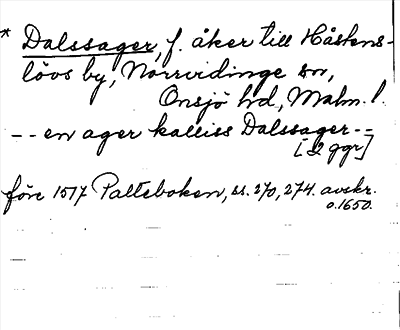 * Dalssager, f. åker till Håstens-
lövs by, Norrvidinge sn,
Onsjö hd, Malm. l.
-- en ager kalliss Dalssager --
[2 ggr]
före 1517 Palteboken, ss. 270, 274. avskr.
o. 1650.